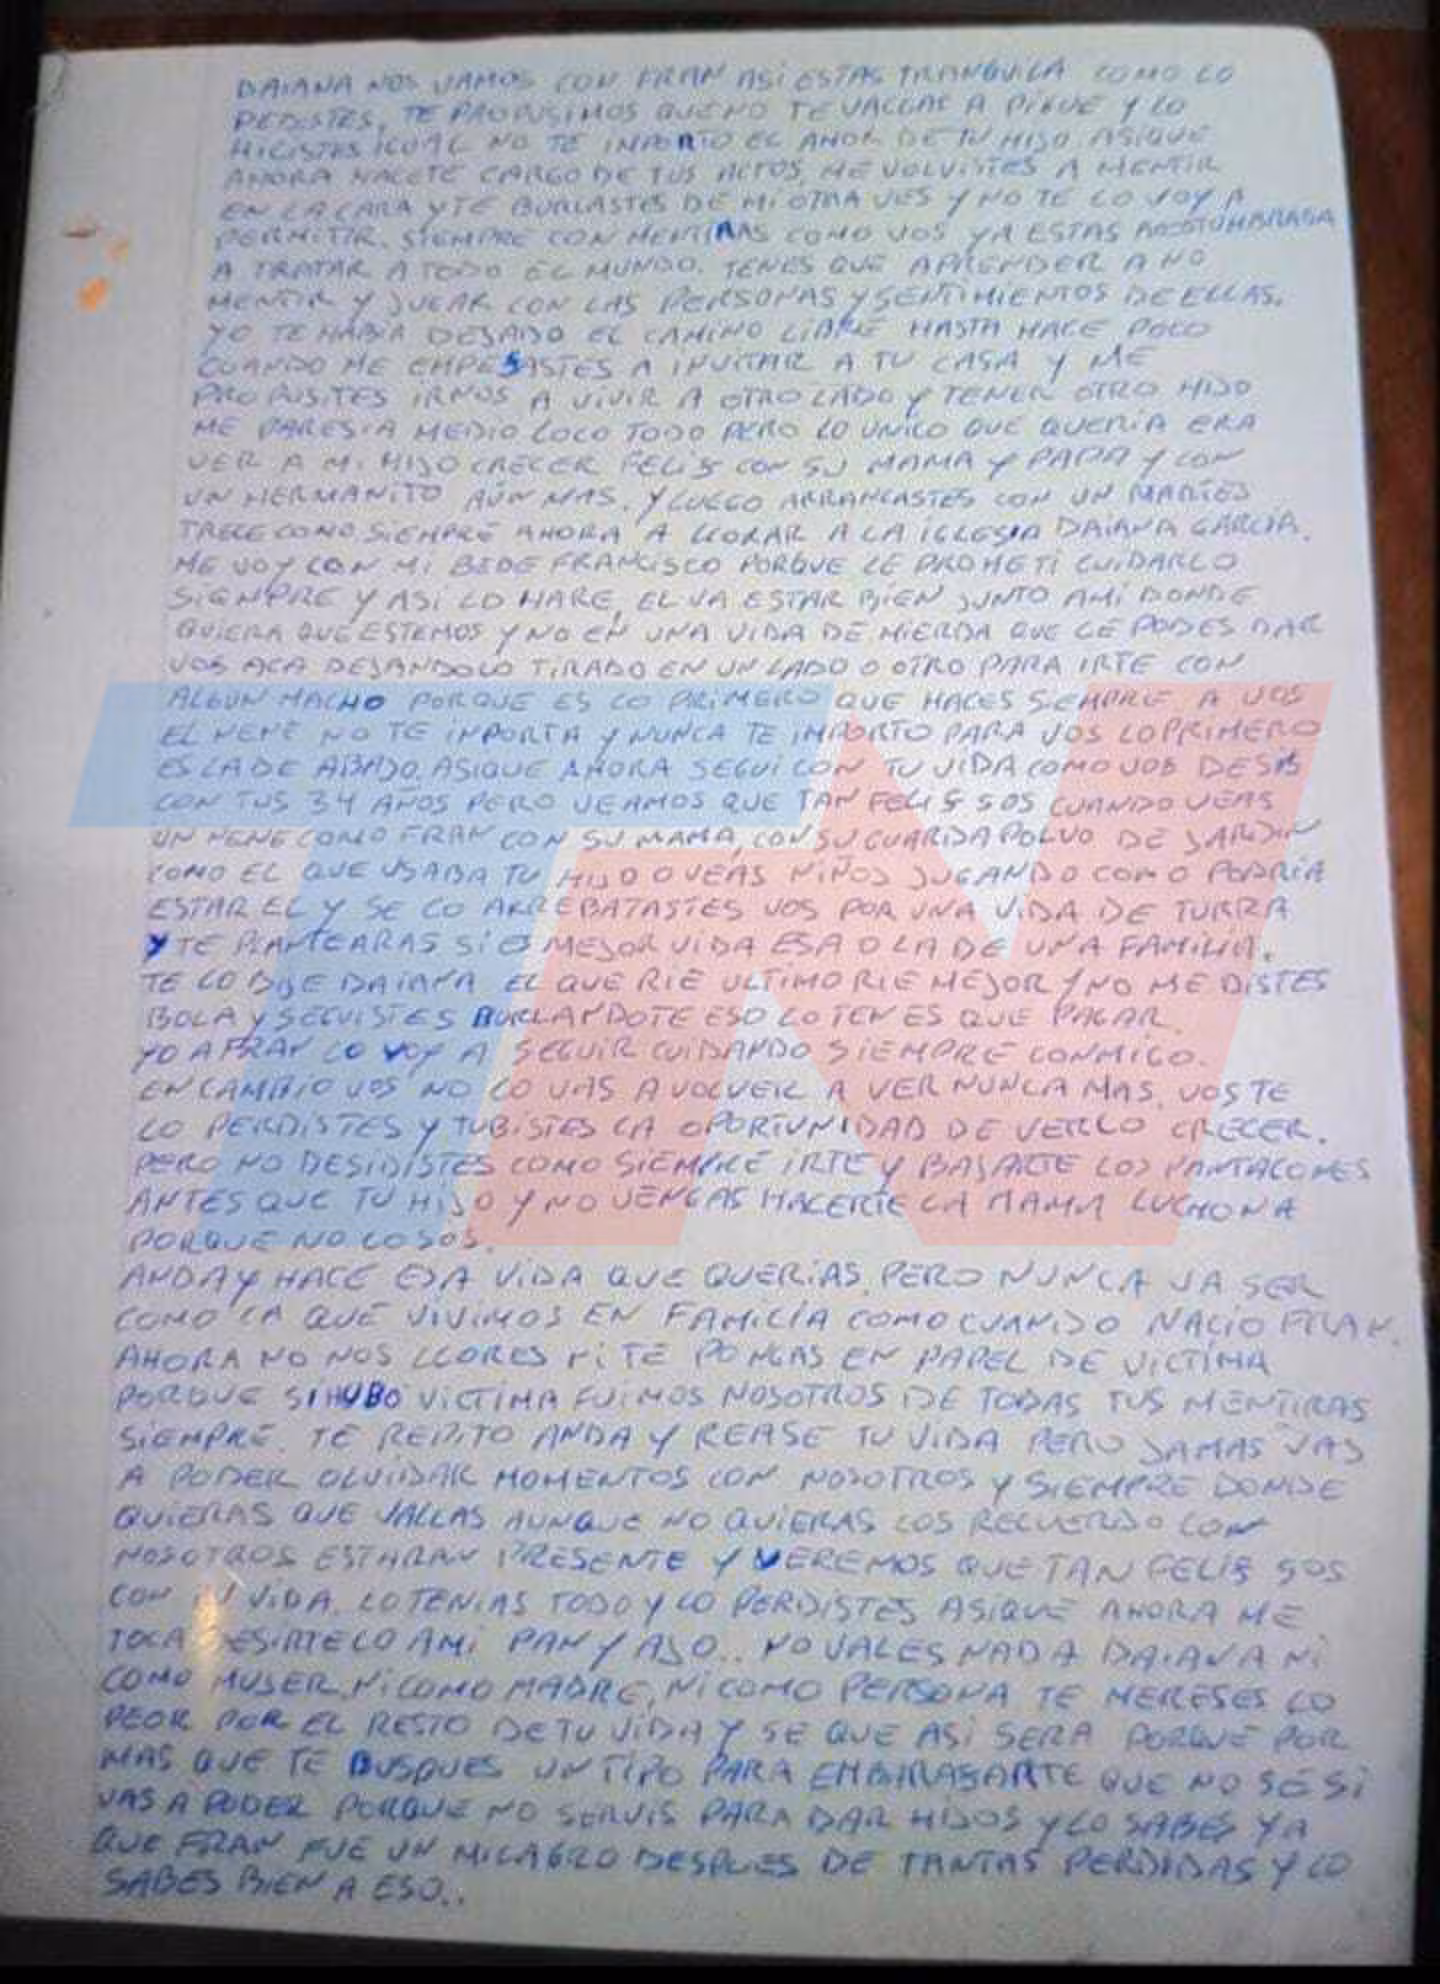 DAIANA NOS VAMOS CON FRAN ASI ESTAS TRANQUILA COMO LO
PEDISTES, TE PROPUSIMOS QUE NO TE VALLAS A PIGUE Y LO
HICISTES IGUAL NO TE INPORTO EL AMOR DE TU HIJO ASIQUE
AHORA HACETE CARGO DE TUS ACTOS, ME VOLVISTES A MENTIR
EN LA CARA Y TE BURLASTES DE MI OTRA VES Y NO TE LO VOY A
PERMITIR. SIEMPRE CON MENTIRAS COMO VOS YA ESTAS ACOSTUMBRADA
A TRATAR A TODO EL MUNDO. TENES QUE APRENDER A NO
MENTIR Y JUGAR CON LAS PERSONAS Y SENTIMIENTOS DE ELLAS.
YO TE HABIA DEJADO EL CAMINO LIBRE HASTA HACE POCO
CUANDO ME EMPESASTES A INVITAR A TU CASA Y ME
PROPUSITES IRNOS A VIVIR A OTRO LADO Y TENER OTRO HIJO
ME PARESIA MEDIO LOCO TODO PERO LO UNICO QUE QUERIA ERA
VER A MI HIJO CRECER FELIS CON SU MAMA Y PAPA Y CON
UN HERMANITO AÚN MAS. Y LUEGO ARRANCASTES CON UN MARTES
TRECE COMO SIEMPRE AHORA A LLORAR A LA IGLESIA DAIANA GARCIA.
ME VOY CON MI BEBE FRANCISCO PORQUE LE PROMETI CUIDARLO
SIEMPRE Y ASI LO HARE, EL VA ESTAR BIEN JUNTO AMI DONDE
QUIERA QUE ESTEMOS Y NO EN UNA VIDA DE MIERDA QUE LE PODES DAR
VOS ACA DEJANDOLO TIRADO EN UN LADO O OTRO PARA IRTE CON
ALGUN MACHO PORQUE ES LO PRIMERO QUE HACES SIEMPRE A VOS
EL NENE NO TE INPORTA Y NUNCA TE IMPORTO PARA VOS LO PRIMERO
ES LA DE ABAJO. ASIQUE AHORA SEGUI CON TU VIDA COMO VOS DESIS
CON TUS 34 AÑOS PERO VEAMOS QUE TAN FELIS SOS CUANDO VEAS
UN NENE COMO FRAN CON SU MAMA, CON SU GUARDAPOLVO DE JARDIN
COMO EL QUE USABA TU HIJO O VEAS NIÑOS JUGANDO COMO PODRIA
ESTAR EL Y SE LO ARREBATASTES VOS POR UNA VIDA DE TURRA
Y TE PLANTEARAS SI ES MEJOR VIDA ESA O LA DE UNA FAMILIA.
TE LO DIJE DAIANA EL QUE RIE ULTIMO RIE MEJOR Y NO ME DISTES
BOLA Y SEGUISTES BURLANDOTE ESO LO TENES QUE PAGAR.
YO A FRAN LO VOY A SEGUIR CUIDANDO SIEMPRE CONMIGO.
EN CAMBIO VOS NO LO VAS A VOLVER A VER NUNCA MAS, VOS TE
LO PERDISTES Y TUBISTES LA OPORTUNIDAD DE VERLO CRECER.
PERO NO DESIDISTES COMO SIEMPRE IRTE Y BAJARTE LOS PANTALONES
ANTES QUE TU HIJO Y NO VENGAS HACERTE LA MAMA LUCHONA
PORQUE NO LO SOS.
ANDA Y HACE ESA VIDA QUE QUERIAS, PERO NUNCA VA SER
COMO LA QUE VIVIMOS EN FAMILIA COMO CUANDO NACIO FRAN.
AHORA NO NOS LLORES NI TE PONGAS EN PAPEL DE VICTIMA
PORQUE SI HUBO VICTIMA FUIMOS NOSOTROS DE TODAS TUS MENTIRAS
SIEMPRE. TE REPITO ANDA Y REASE TU VIDA PERO JAMAS VAS
A PODER OLVIDAR MOMENTOS CON NOSOTROS Y SIEMPRE DONDE
QUIERAS QUE VALLAS AUNQUE NO QUIERAS LOS RECUERDO CON
NOSOTROS ESTARAN PRESENTE Y VEREMOS QUE TAN FELIS SOS
CON TU VIDA. LO TENIAS TODO Y LO PERDISTES ASIQUE AHORA ME
TOCA DESIRTELO AMI PAN Y AJO.. NO VALES NADA DAIANA NI
COMO MUJER, NI COMO MADRE, NI COMO PERSONA TE MERESES LO
PEOR POR EL RESTO DE TU VIDA Y SE QUE ASI SERA PORQUE POR
MAS QUE TE BUSQUES UN TIPO PARA EMBARASARTE QUE NO SE SI
VAS A PODER PORQUE NO SERVIS PARA DAR HIJOS Y LO SABES YA
QUE FRAN FUE UN MILAGRO DESPUES DE TANTAS PERDIDAS Y LO
SABES BIEN A ESO..
TN